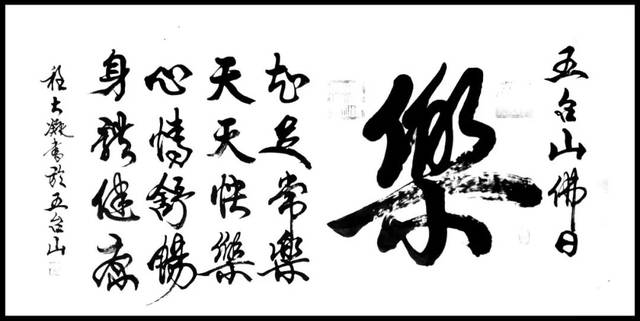 五台山佛日
樂
知足常樂
天天快樂
心情舒暢
身體健康
書於五台山